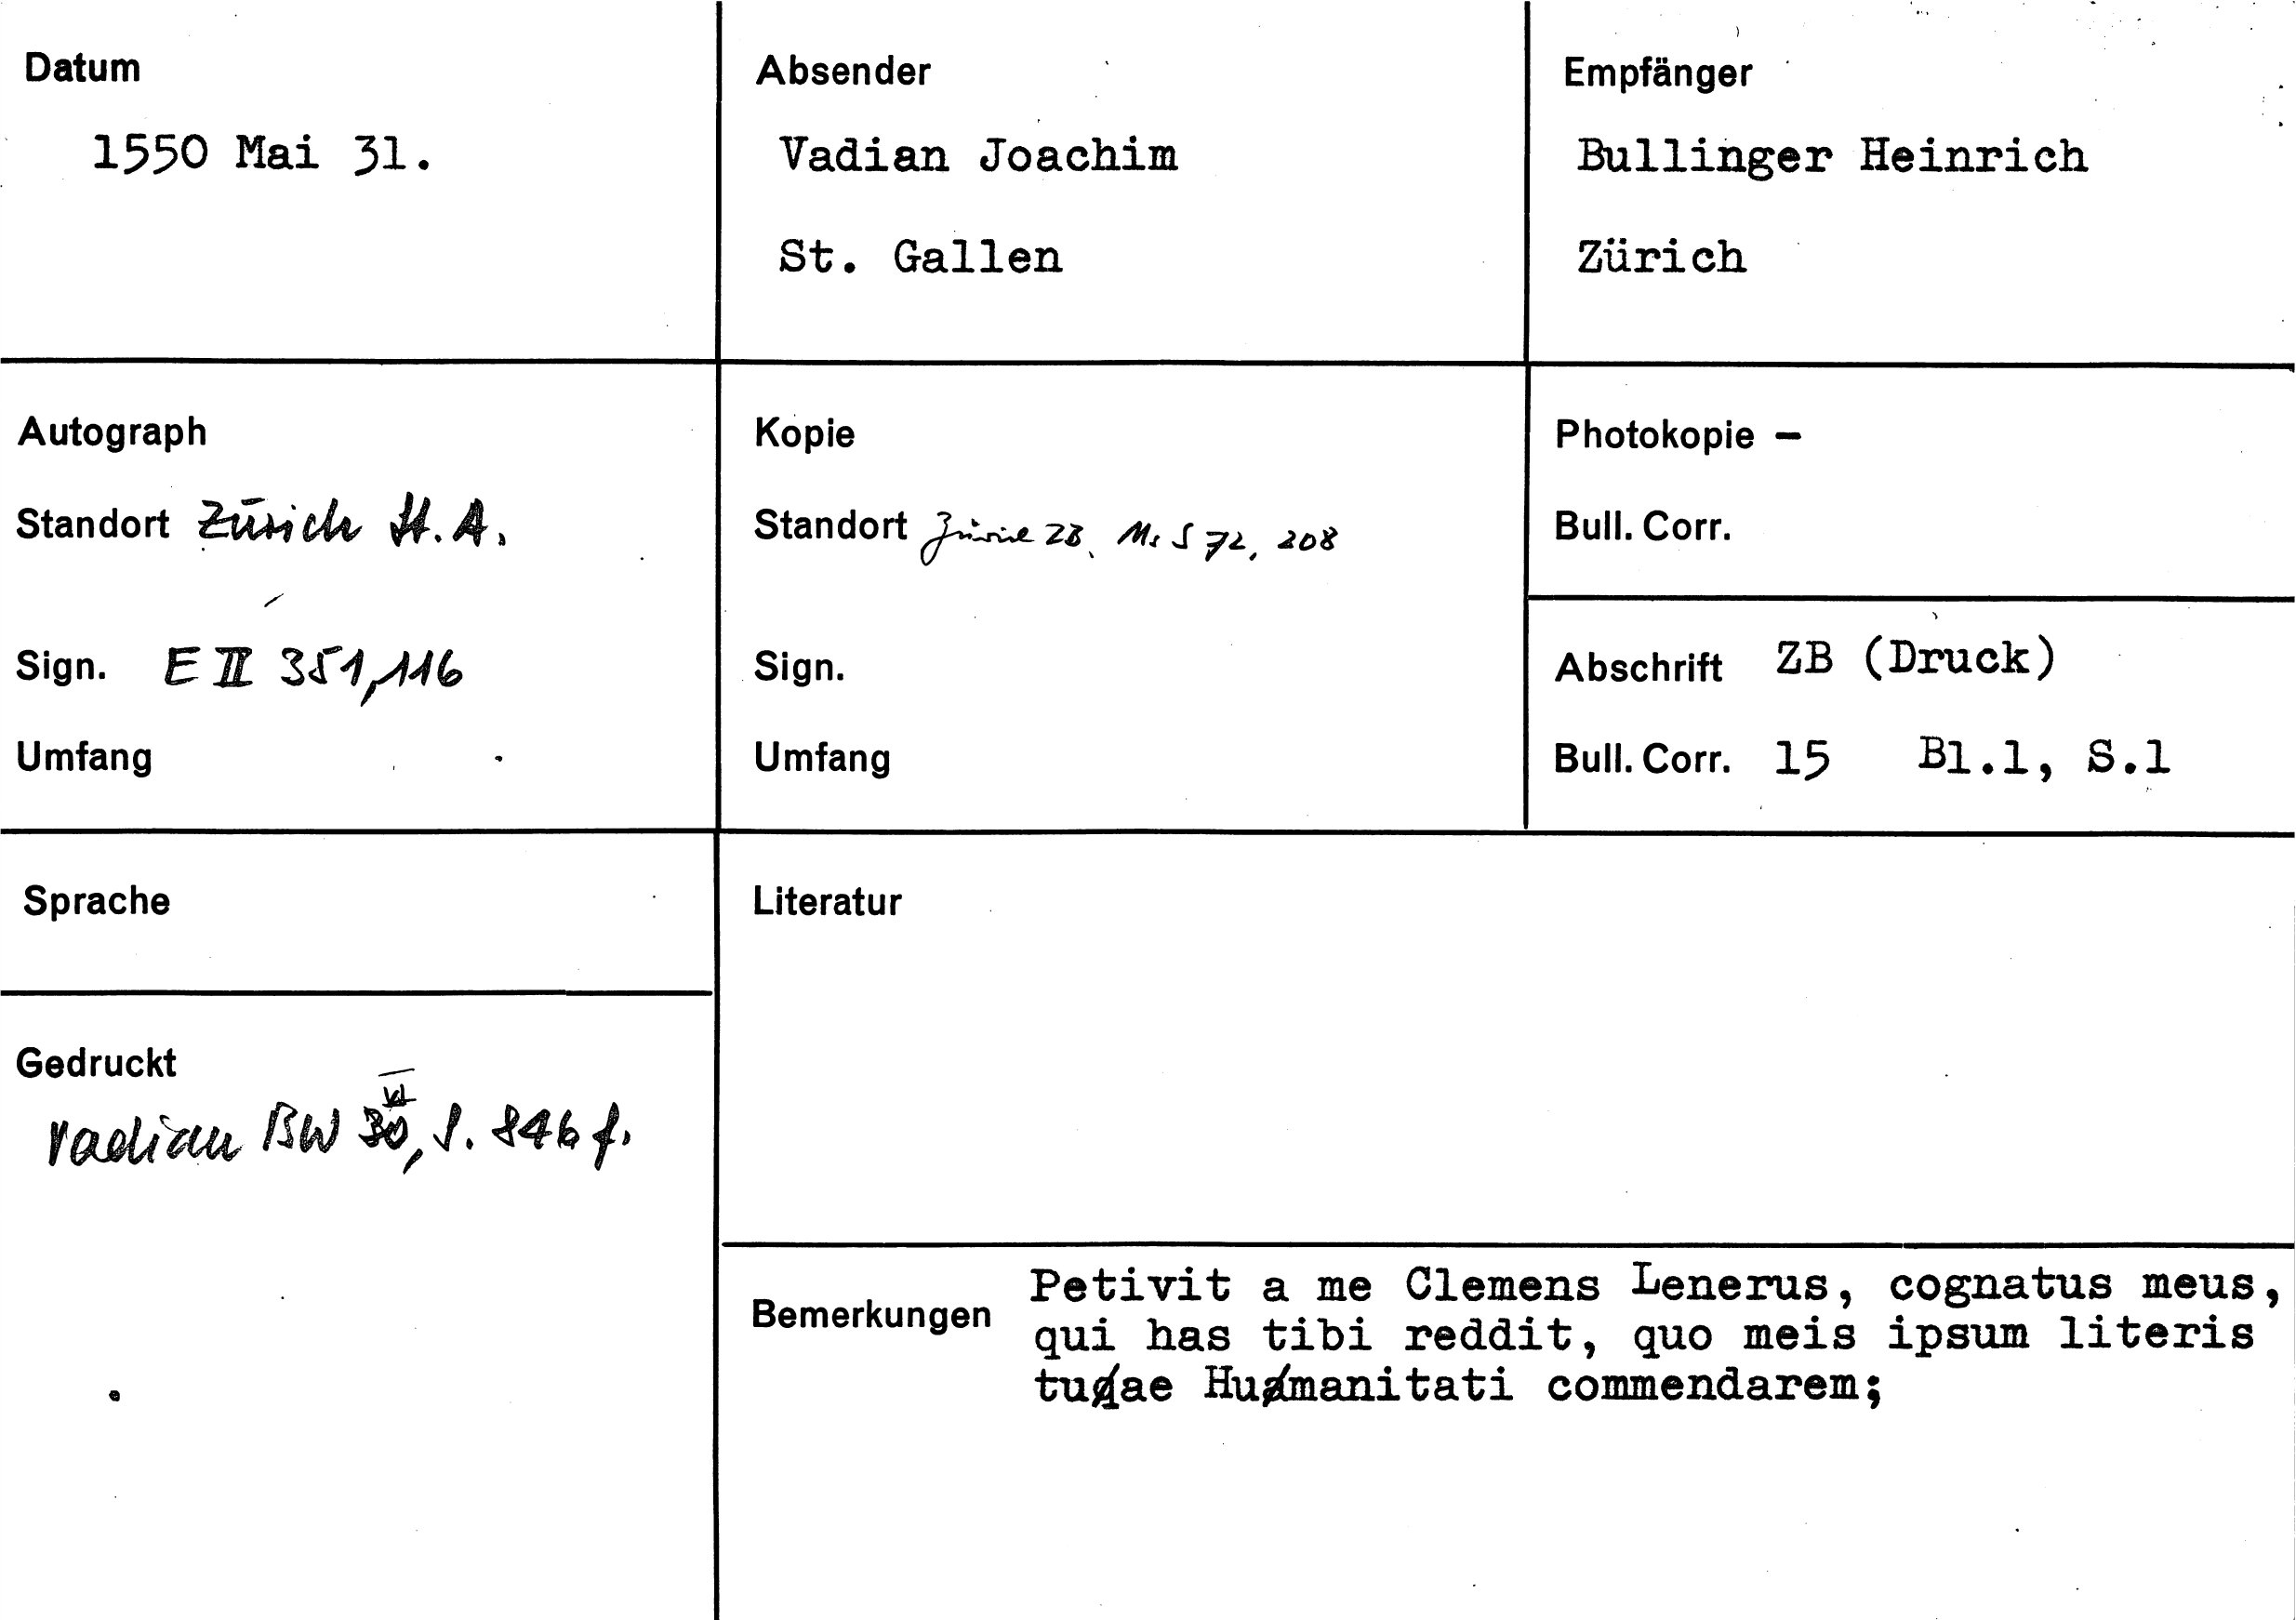 Datum
1550 Mai 31.
Absender
Vadian Joachim
St. Gallen
Empfänger
Bullinger Heinrich
Zürich
Autograph
Standort Zürich St. A.
Sign. E II 351,116
Umfang
Kopie
Standort Zürich ZB, Ms S 72, 208
Sign.
Umfang
Photokopie –
Bull. Corr.
Abschrift ZB (Druck)
Bull. Corr. 15 Bl.1, S.1
Sprache
Gedruckt
Vadian BW VI, S. 846 f.
Literatur
Bemerkungen
Petivit a me Clemens Lenerus, cognatus meus,
qui has tibi reddit, quo meis ipsum literis
tuae Humanitati commendarem;